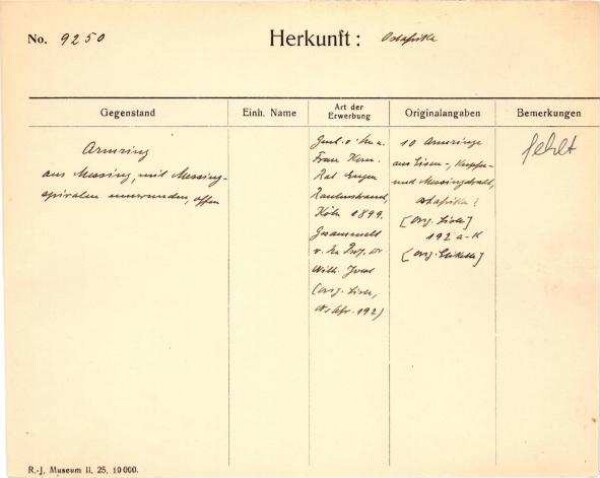 No. 9250
Herkunft: Ostafrika
Gegenstand
Einh. Name
Art der Erwerbung
Originalangaben
Bemerkungen
Armring
aus Messing, mit Messing-
spiralen umwunden, offen
Frau Kom.
Rat Eugen
Rautenstrauch,
Köln 1899.
Gesammelt
v. Prof. Dr
Wilh. Joest
(Orig. Liste,
192)
10 Armringe
aus Eisen-, Kupfer-
und Messingdraht,
Ostafrika
[Orig. Liste]
192 a-k
[Orig. Etikette]
fehlt
R.-J. Museum II. 25. 10000.